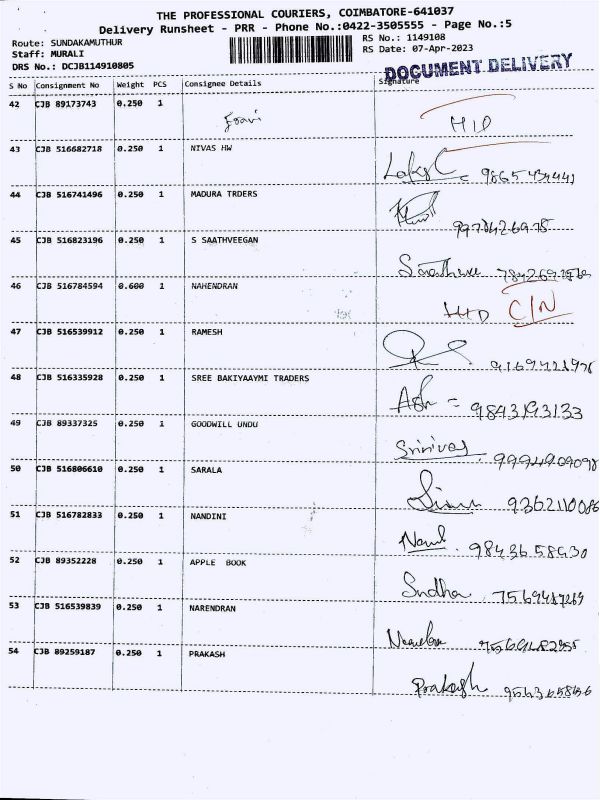 THE PROFESSIONAL COURIERS, COIMBATORE-641037
Delivery Runsheet - PRR - Phone No.:0422-3505555 - Page No.:5
Route: SUNDAKAMUTHUR RS No.: 1149108
Staff: MURALI RS Date: 07-Apr-2023
DRS No.: DCJB114910805 DOCUMENT DELIVERY
S No Consignment No Weight PCS Consignee Details Signature
42 CJB 89173743 0.250 1
HID
43 CJB 516682718 0.250 1 NIVAS HW
44 CJB 516741496 0.250 1 MADURA TRDERS
45 CJB 516823196 0.250 1 S SAATHVEEGAN
46 CJB 516784594 0.600 1 NAHENDRAN
HID C/N
47 CJB 516539912 0.250 1 RAMESH
48 CJB 516335928 0.250 1 SREE BAKIYAAYMI TRADERS
Ash = 9843193133
49 CJB 89337325 0.250 1 GOODWILL UNDU
Srinivas 9994909098
50 CJB 516806610 0.250 1 SARALA
9362110086
51 CJB 516782833 0.250 1 NANDINI
52 CJB 89352228 0.250 1 APPLE BOOK
Sudha
53 CJB 516539839 0.250 1 NARENDRAN
54 CJB 89259187 0.250 1 PRAKASH
Prakash